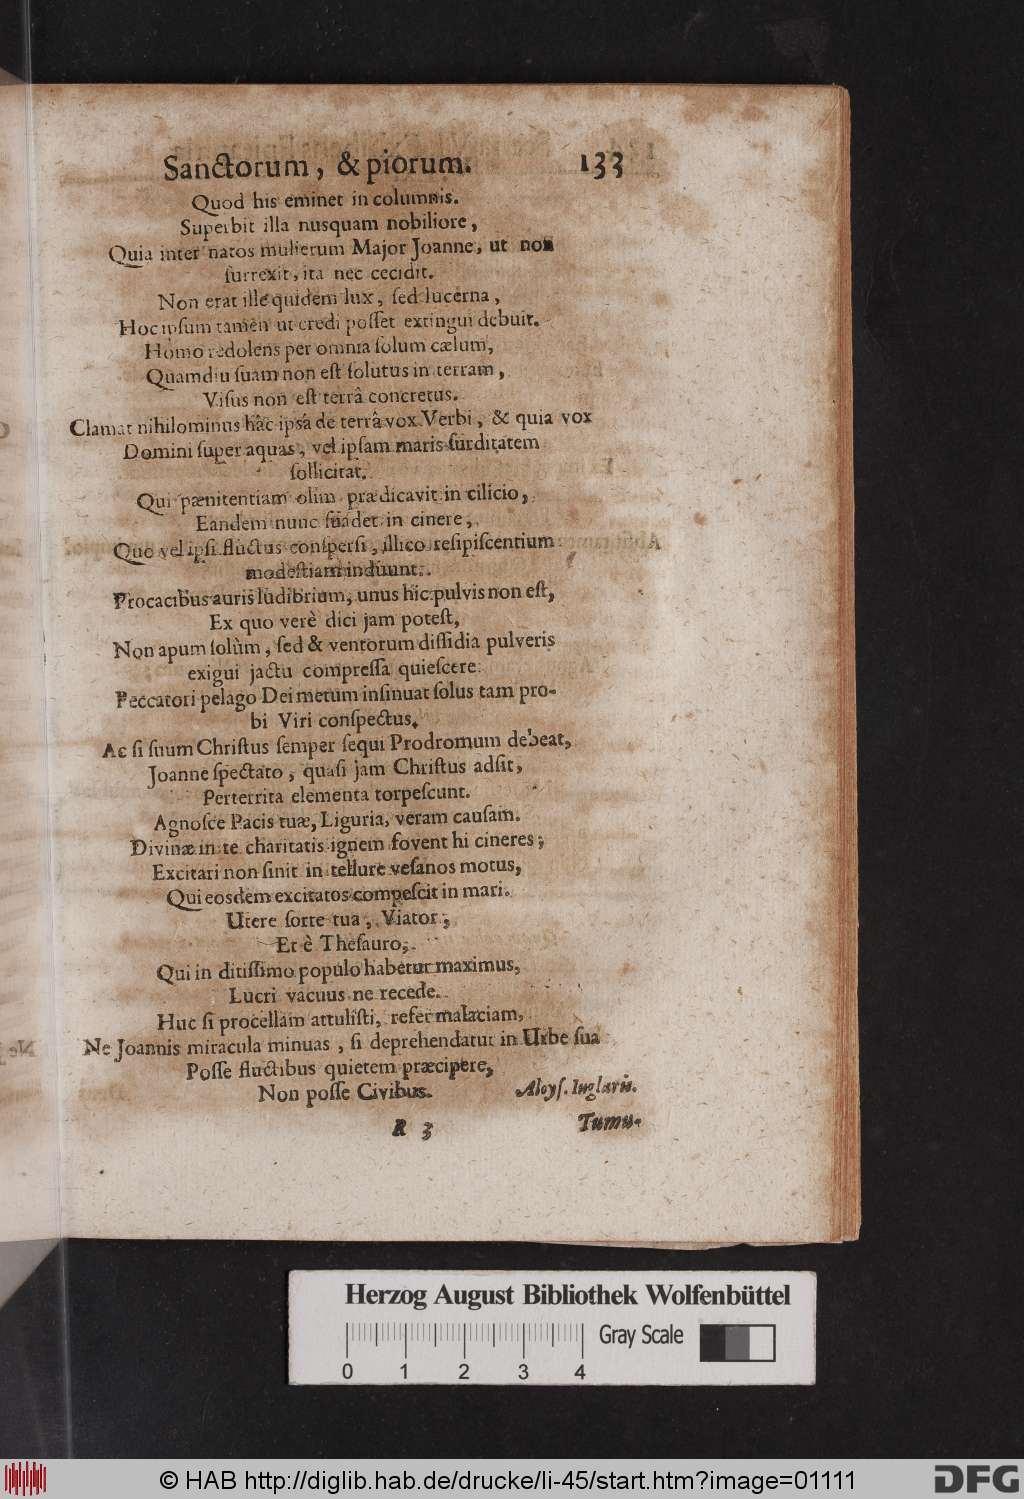 Sanctorum, & piorum. 133
Quod his eminet in columnis.
Superbit illa nusquam nobiliore,
Quia inter natos mulierum Major Joanne, ut non
ſurrexit, ita nec cecidit.
Non erat ille quidem lux, ſed lucerna,
Hoc ipſum tamen ut credi poſſet extingui debuit.
Homo redolens per omnia ſolum cælum,
Quamdiu ſuam non eſt ſolutus in terram,
Viſus non eſt terrâ concretus.
Clamat nihilominus hâc ipsâ de terrâ vox Verbi, & quia vox
Domini ſuper aquas, vel ipſam maris ſurditatem
ſollicitat.
Qui pænitentiam olim prædicavit in cilicio,
Eandem nunc ſuadet in cinere,
Quo vel ipſi fluctus conſperſi, illico reſipiſcentium
modeſtiam induunt.
Procacibus auris ludibrium, unus hic pulvis non eſt,
Ex quo verè dici jam poteſt,
Non apum ſolùm, ſed & ventorum diſſidia pulveris
exigui jactu compreſſa quieſcere.
Peccatori pelago Dei metum inſinuat ſolus tam pro-
bi Viri conſpectus.
Ac ſi ſuum Chriſtus ſemper ſequi Prodromum debeat,
Joanne ſpectato, quaſi jam Chriſtus adſit,
Perterrita elementa torpeſcunt.
Agnoſce Pacis tuæ, Liguria, veram cauſam.
Divinæ in te charitatis ignem fovent hi cineres;
Excitari non ſinit in tellure veſanos motus,
Qui eosdem excitatos compeſcit in mari.
Utere ſorte tua, Viator,
Et è Theſauro,
Qui in ditiſſimo populo habetur maximus,
Lucri vacuus ne recede.
Huc ſi procellam attuliſti, refer malaciam,
Ne Joannis miracula minuas, ſi deprehendatur in Urbe ſua
Poſſe fluctibus quietem præcipere,
Non poſſe Civibus. Aloyſ. Iuglaris.
R 3 Tumu-
Herzog August Bibliothek Wolfenbüttel
Gray Scale
0 1 2 3 4
© HAB http://diglib.hab.de/drucke/li-45/start.htm?image=01111
DFG